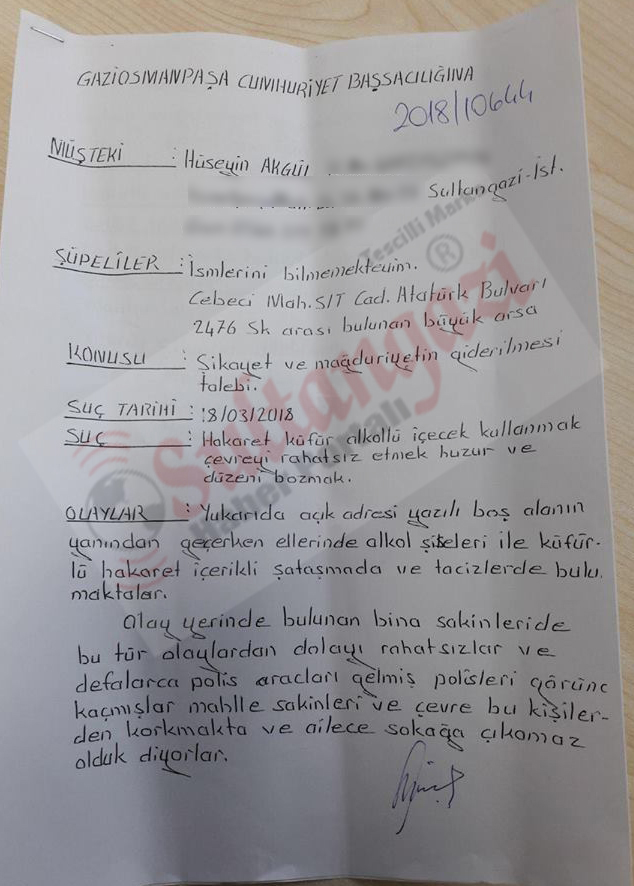 GAZİOSMANPAŞA CUMHURİYET BAŞSACILIĞINA
2018/10644
MÜŞTEKİ : Hüseyin AKGÜL
Sultangazi-İst.
ŞÜPELİLER : İsmlerini bilmemekteyim.
Cebeci Mah. S/T Cad. Atatürk Bulvarı
2476 Sk arası bulunan büyük arsa
KONUSU : Şikayet ve mağduriyetin giderilmesi
talebi.
SUÇ TARİHİ : 18/03/2018
SUÇ : Hakaret küfür alkollü içecek kullanmak
çevreyi rahatsız etmek huzur ve
düzeni bozmak.
OLAYLAR : Yukarıda açık adresi yazılı boş alanın
yanından geçerken ellerinde alkol şişeleri ile küfür-
lü hakaret içerikli şataşmada ve tacizlerde bulu.
maktalar.
Olay yerinde bulunan bina sakinleride
bu tür olaylardan dolayı rahatsızlar ve
defalarca polis araçları gelmiş polisleri görünc
kaçmışlar mahlle sakinleri ve çevre bu kişiler-
den korkmakta ve ailece sokağa çıkamaz
olduk diyorlar.
Tescilli Mark
®
Sultangazi